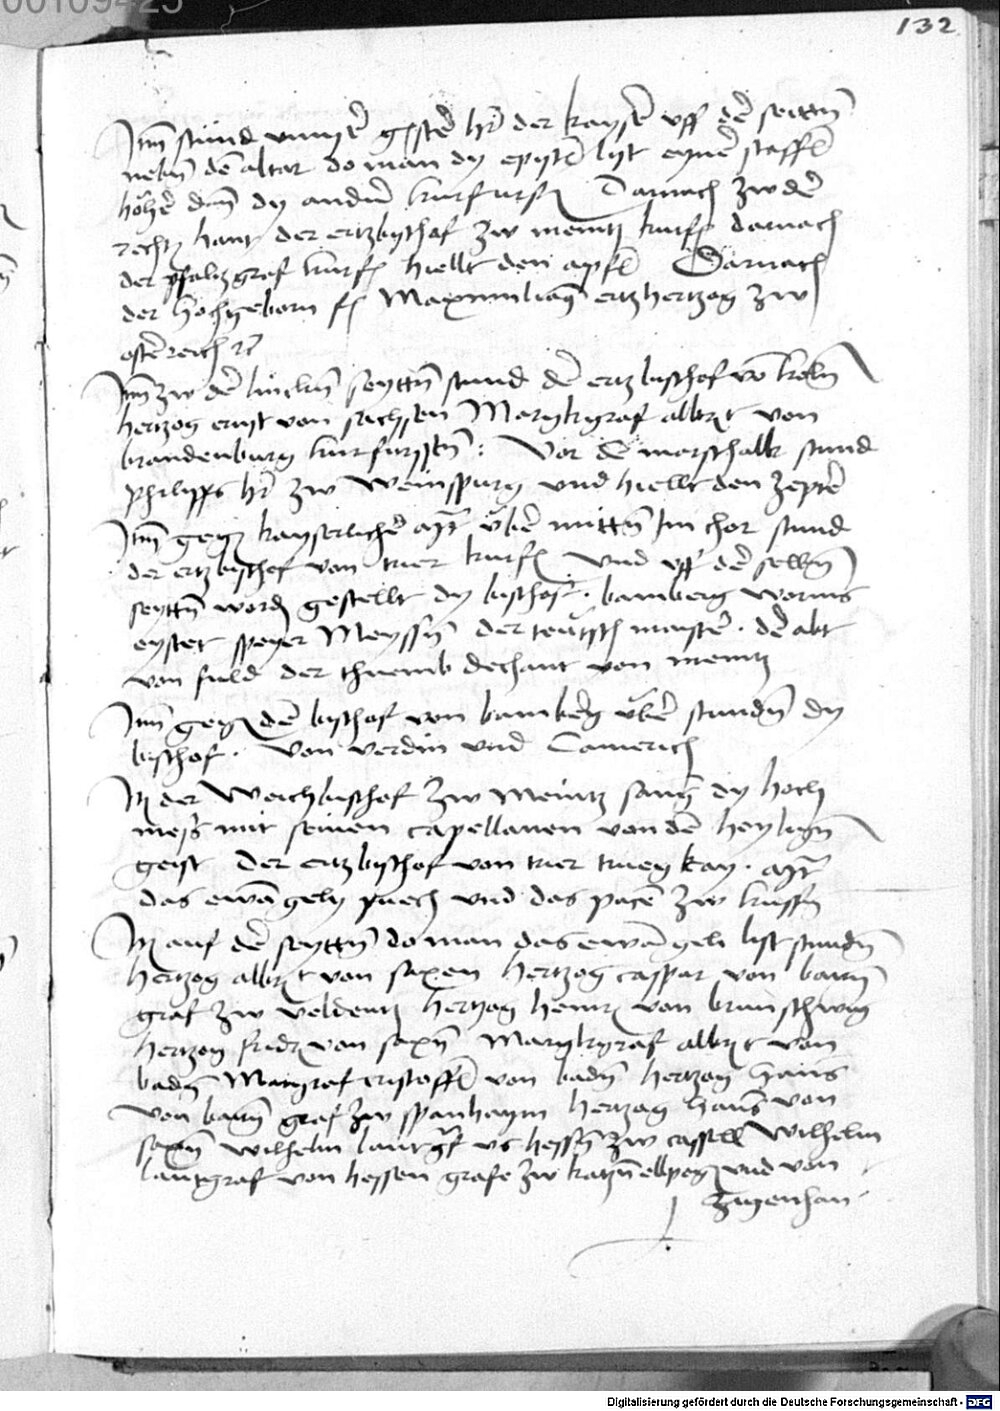 00109425
132
Itm stund unnser g̅ster h̅r der kayser uff der seittn̅
nebn̅ dē altar do man dy epistel list eyner staffel
höher dan̅ dy andern̅ kurfursn̅ Darnach zw der
rechtn̅ hant der ertzbyschaf zw meintz kurf̅ darnach
der pfaltzgraf kurf̅ hiellt den apfel Darnach
der hochgeborn f̅ Maxmilian̅ ertzhertzog zw
osterreich ꝛc
Itm̅ zw der linckn̅ seyttn̅ stund der ertzbischof vō koln̅
hertzog ernst von sachssen Marggkgraf albrꝛt von
brandenburg kurfursstn̅ : Vor dē marschalk stund
philipps h̅r zw Weinspurg und hiellt den zepter
Itm̅ gegn̅ kayserlicher m̅t uber mittn̅ Im chor stund
der ertzbischof von trier kurf̅ und uff der sellbn̅
seyttn̅ wordn̅ gestellt dy bischof · bamberg worms
eystet speyer Meyssn̅ der teutsch maister · der abt
von fuld der thuemb dechant von meintz
Itm̅ gegn̅ dem bischof von bamberg uber stundn̅ dy
bischof · von verdin und Camerich
Itm̅ der Weichbischof zw Meintz sang dy hoch
mess mit seinen capellanen von dem heylign̅
geist der ertzbischof von trier trueg kay · m̅t
das ewāgely puech und das pacem zw kussn̅
Itm̅ auf der seyttn̅ do man das ewāgeli list stundn̅
hertzog albrꝛt von saxen hertzog caspar von bairn̅
graf zw veldentz hertzog heinr̅ von brunschwig
hertzog fridr̅ von saxn̅ Marggkgraf albrꝛt von
badn̅ Margraf cristoffel von badn̅ hertzog hanns
von bairn̅ graf zw spanhaym hertzog hanns von
saxn̅ wilhelm lantg̅f vō hessn̅ zw cassell Wilhelm
lantgraf von hessen grafe zw katzn̅ellpogn̅ und von
zigenhan
Digitalisierung gefördert durch die Deutsche Forschungsgemeinschaft - DFG